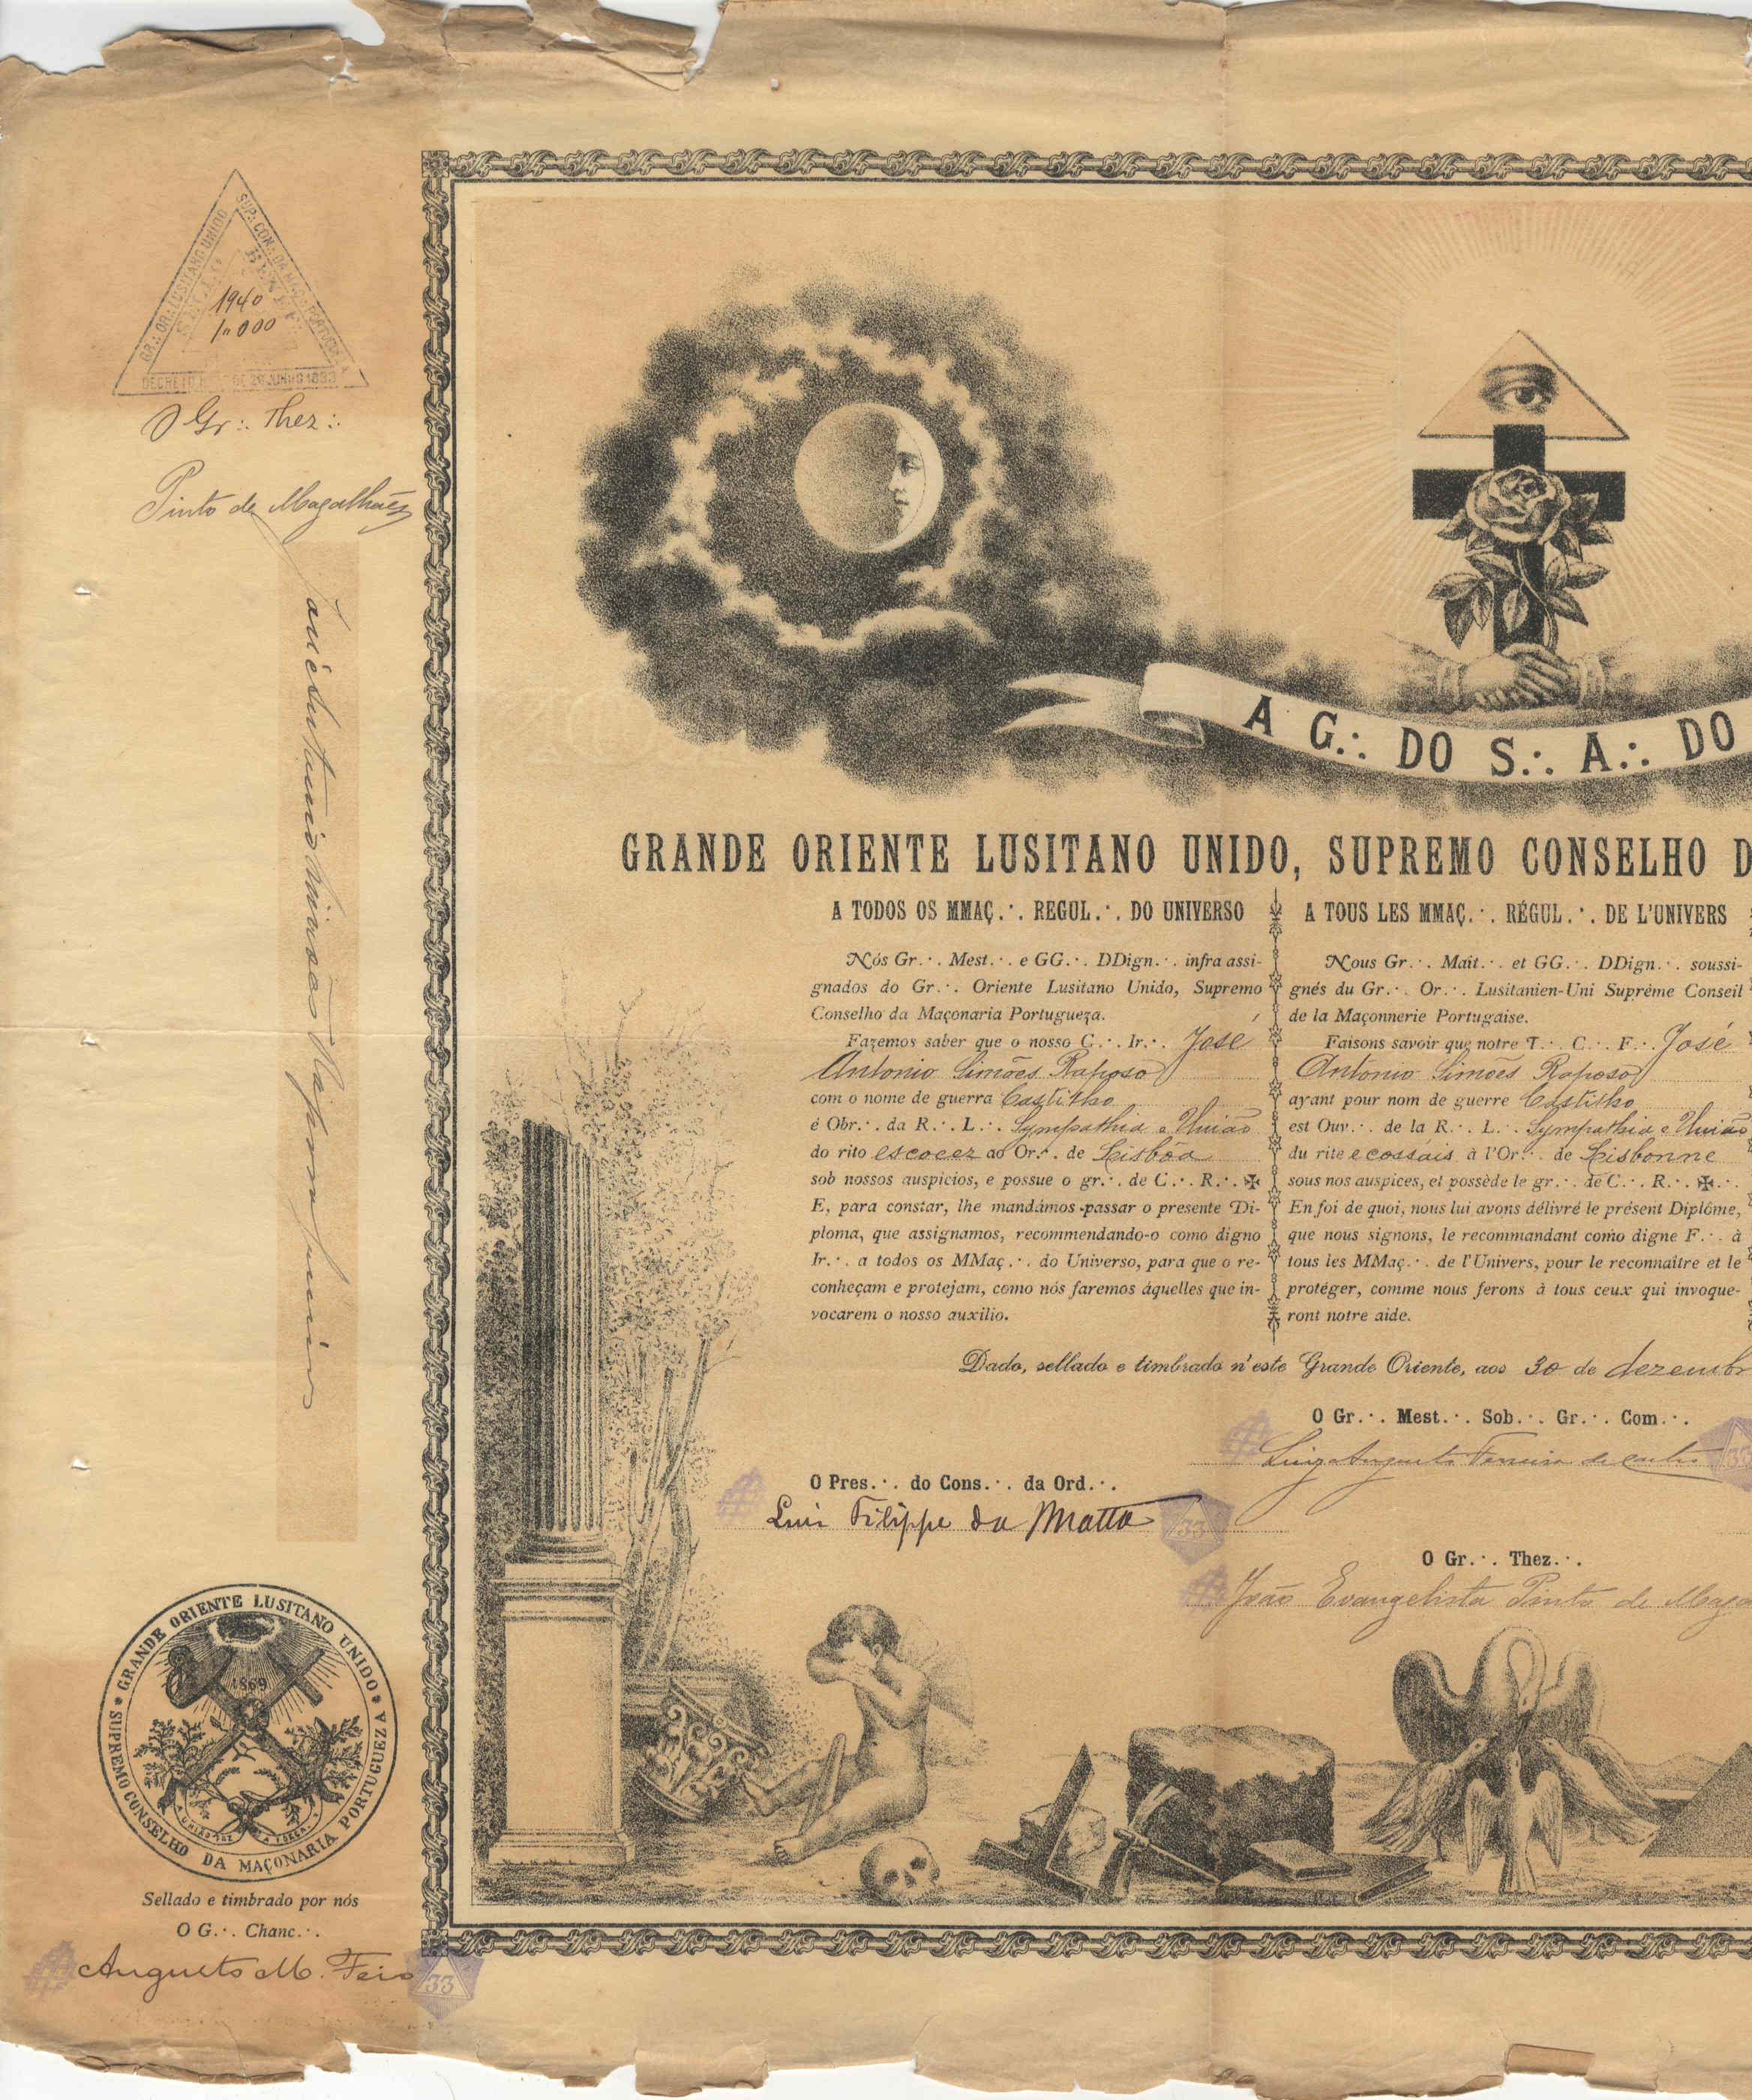 GR∴ OR∴ LUSITANO UNIDO
SUP∴ CON∴ DA
1940
1$000
DE 26 JUNHO 1893
O Gr∴ Thez∴
Pinto de Magalhães
A G∴ DO S∴ A∴ DO
GRANDE ORIENTE LUSITANO UNIDO, SUPREMO CONSELHO D
A TODOS OS MMAÇ∴ REGUL∴ DO UNIVERSO
Nós Gr∴ Mest∴ e GG∴ DDign∴ infra assi-
gnados do Gr∴ Oriente Lusitano Unido, Supremo
Conselho da Maçonaria Portugueza.
Fazemos saber que o nosso C∴ Ir∴ José
Antonio Simões Raposo
com o nome de guerra Castilho
é Obr∴ da R∴ L∴ Sympathia e União
do rito escocez ao Or∴ de Lisbôa
sob nossos auspicios, e possue o gr∴ de C∴ R∴ ✠
E, para constar, lhe mandámos passar o presente Di-
ploma, que assignamos, recommendando-o como digno
Ir∴ a todos os MMaç∴ do Universo, para que o re-
conheçam e protejam, como nós faremos áquelles que in-
vocarem o nosso auxilio.
A TOUS LES MMAÇ∴ RÉGUL∴ DE L'UNIVERS
Nous Gr∴ Mait∴ et GG∴ DDign∴ soussi-
gnés du Gr∴ Or∴ Lusitanien-Uni Suprême Conseil
de la Maçonnerie Portugaise.
Faisons savoir que notre T∴ C∴ F∴ José
Antonio Simões Raposo
ayant pour nom de guerre Castilho
est Ouv∴ de la R∴ L∴ Sympathia e União
du rite ecossais à l'Or∴ de Lisbonne
sous nos auspices, et possède le gr∴ de C∴ R∴ ✠∴
En foi de quoi, nous lui avons délivré le présent Diplôme,
que nous signons, le recommandant como digne F∴ à
tous les MMaç∴ de l'Univers, pour le reconnaître et le
protéger, comme nous ferons à tous ceux qui invoque-
ront notre aide.
Dado, sellado e timbrado n'este Grande Oriente, aos 30 de dezembr
O Gr∴ Mest∴ Sob∴ Gr∴ Com∴
Luiz Augusto Ferreira de Castro
33
O Pres∴ do Cons∴ da Ord∴
Luiz Filippe da Matta
33
O Gr∴ Thez∴
João Evangelista Pinto de Maga
GRANDE ORIENTE LUSITANO UNIDO
SUPREMO CONSELHO DA MAÇONARIA PORTUGUEZA
1869
Sellado e timbrado por nós
O G∴ Chanc∴
Augusto M. Feio
33